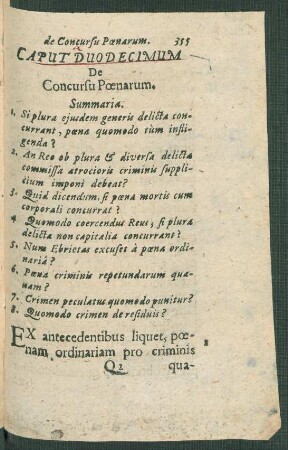 de Concursu Pœnarum. 355
CAPUT DUODECIMUM
De
Concursu Pœnarum.
Summaria.
1. Si plura ejusdem generis delicta con-
currant, pœna quomodo tum infli-
genda?
2. An Reo ob plura & diversa delicta
commissa atrocioris criminis suppli-
tium imponi debeat?
3. Quid dicendum, si pœna mortis cum
corporali concurrat?
4. Quomodo coercendus Reus, si plura
delicta non capitalia concurrant?
5. Num Ebrietas excuset à pœna ordi-
nariâ?
6. Pœna criminis repetundarum quæ-
nam?
7. Crimen peculatus quomodo punitur?
8. Quomodo crimen de residuis?
EX antecedentibus liquet, pœ-
nam ordinariam pro criminis
Q2 qua-